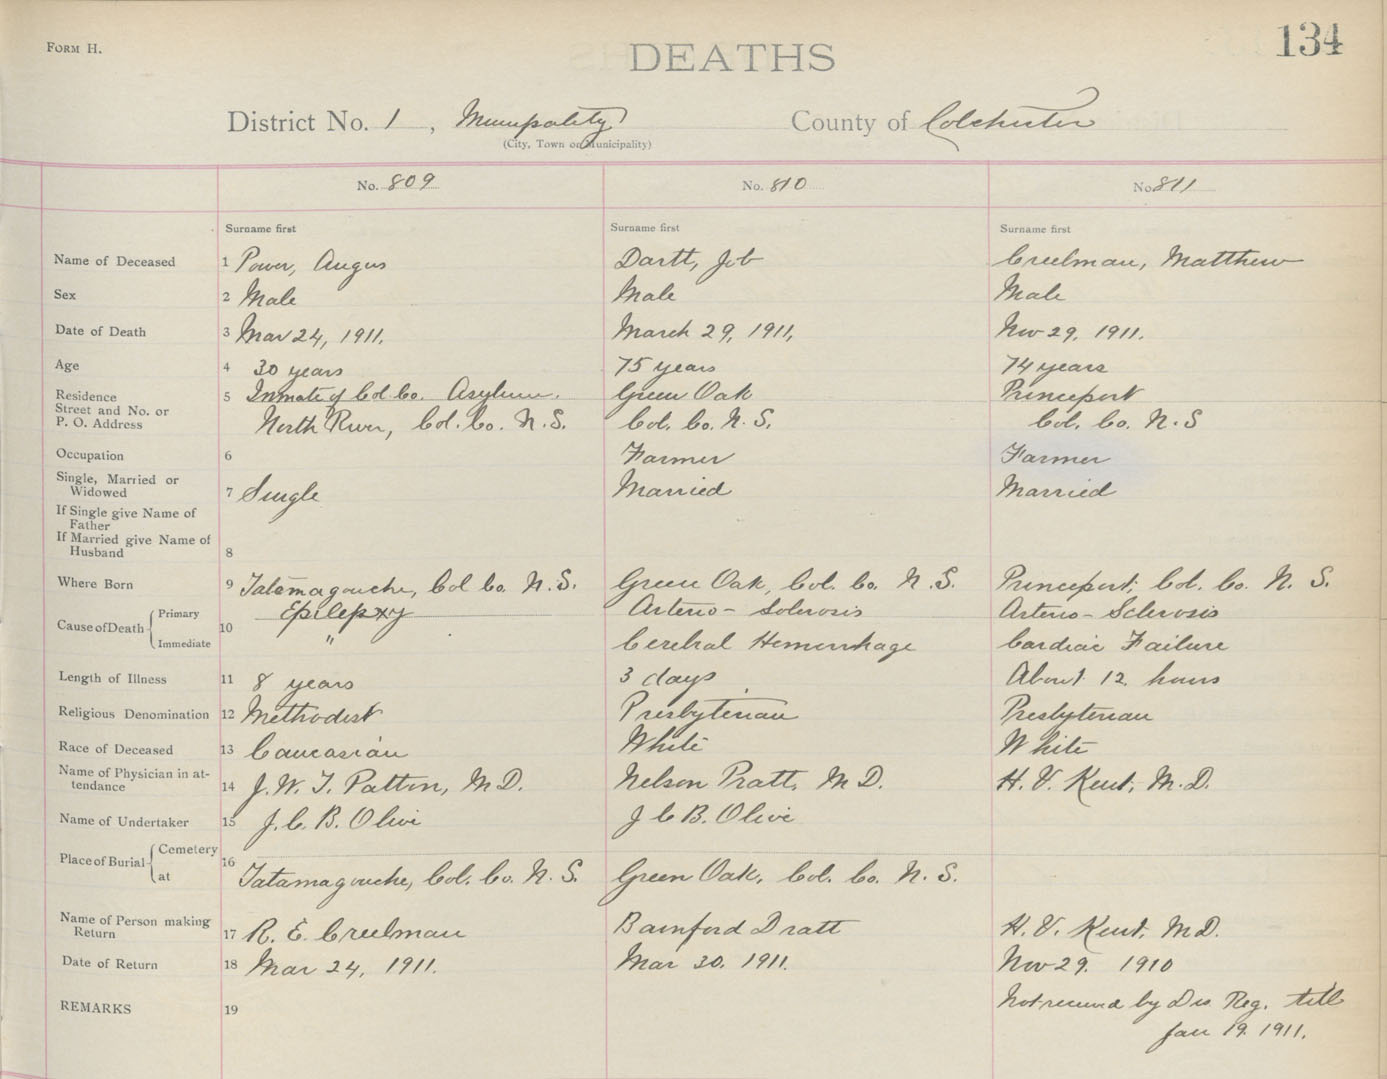 FORM H.
134
DEATHS
District No. 1, Municipality County of Colchester
(City, Town or Municipality)
No. 809 No. 810 No. 811
Surname first Surname first Surname first
Name of Deceased 1 Power, Angus Dartt, Job Creelman, Matthew
Sex 2 Male Male Male
Date of Death 3 Mar 24, 1911. March 29, 1911, Nov 29, 1911.
Age 4 30 years 75 years 74 years
Residence 5 Inmate of Col. Co. Asylum. Green Oak Princeport
Street and No. or
P. O. Address North River, Col. Co. N.S. Col. Co. N.S. Col. Co. N.S
Occupation 6 Farmer Farmer
Single, Married or
Widowed 7 Single Married Married
If Single give Name of
Father
If Married give Name of
Husband 8
Where Born 9 Tatamagouche, Col Co. N.S. Green Oak, Col. Co. N.S. Princeport, Col. Co. N. S.
Cause of Death Primary 10 Epilepxy Arterio-Sclerosis Arterio-Sclerosis
Immediate " Cerebral Hemorrhage Cardiac Failure
Length of Illness 11 8 years 3 days About 12 hours
Religious Denomination 12 Methodist Presbyterian Presbyterian
Race of Deceased 13 Caucasian White White
Name of Physician in at-
tendance 14 J. W. T. Patton, M.D. Nelson Pratt, M D. H. V. Kent, M.D.
Name of Undertaker 15 J. C. B. Olive J C B. Olive
Place of Burial Cemetery 16
at Tatamagouche, Col. Co. N. S. Green Oak, Col. Co. N. S.
Name of Person making
Return 17 R. E. Creelman Bamford Dratt H. V. Kent, M.D.
Date of Return 18 Mar 24, 1911. Mar 30, 1911. Nov 29. 1910
REMARKS 19 Not received by Div. Reg. till
Jan 19. 1911.